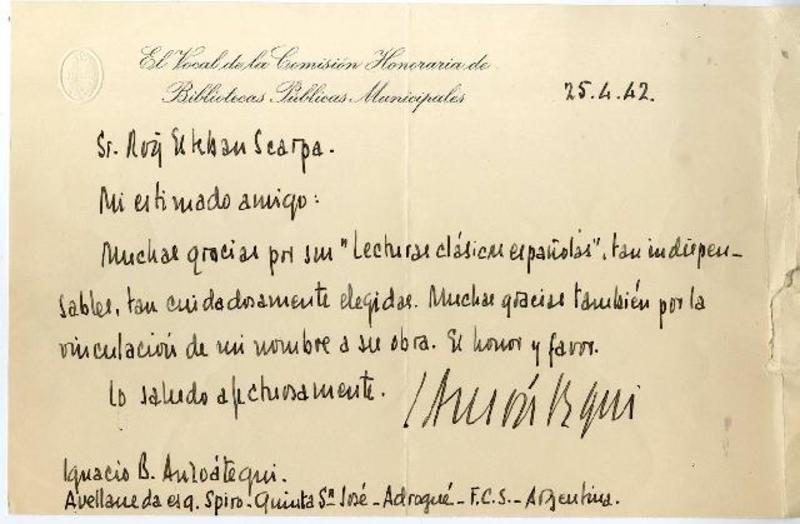 El Vocal de la Comisión Honoraria de
Bibliotecas Públicas Municipales
25.4.42.
Sr. Roq Esteban Scarpa.
Mi estimado amigo:
Muchas gracias por sus "Lecturas clásicas españolas", tan indispen-
sables, tan cuidadosamente elegidas. Muchas gracias también por la
vinculación de mi nombre a su obra. Es honor y favor.
Lo saludo afectuosamente.
I Anzoátegui
Ignacio B. Anzoátegui.
Avellaneda esq. Spiro - Quinta Sn José - Adrogué - F.C.S. - Argentina.